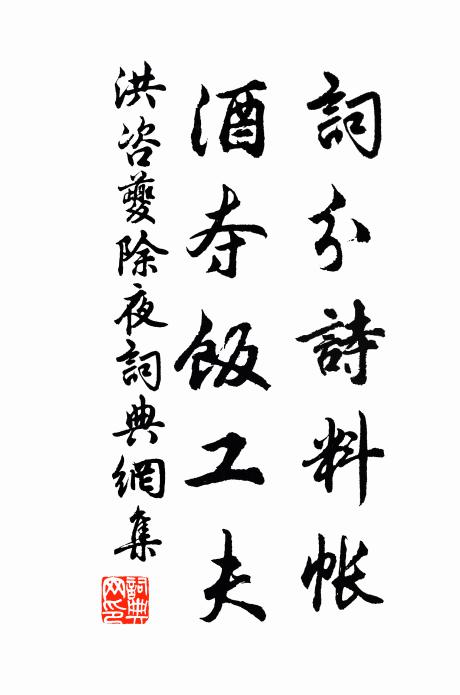 詞分詩料帳
酒夺飯工夫
洪咨夔除夜詞典網集
詞典网印